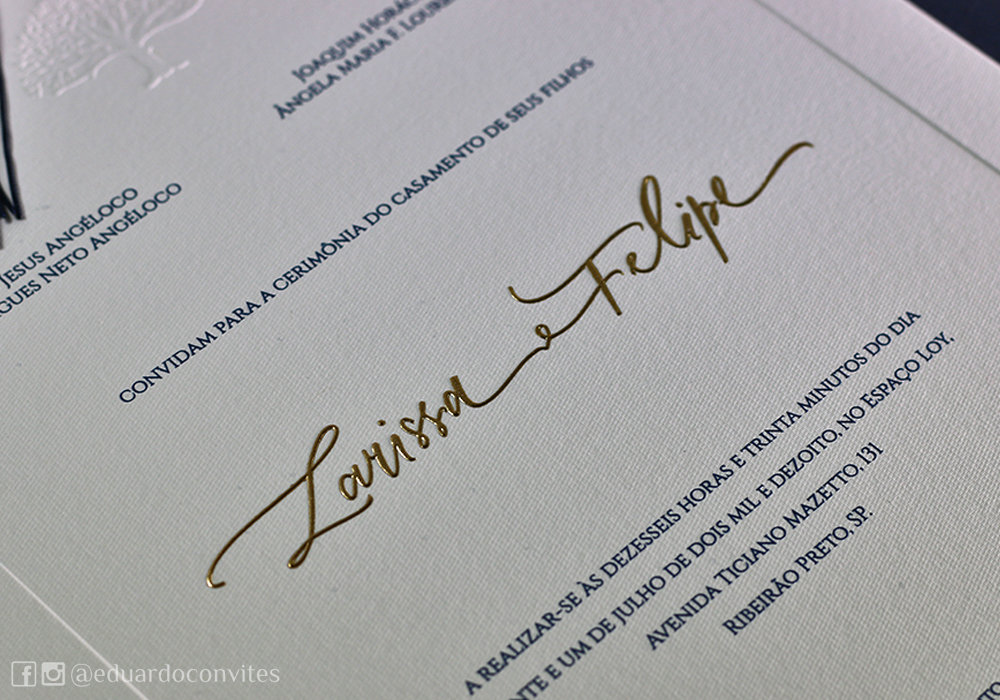 JOAQUIM
ÂNGELA MARIA F.
JESUS ANGÉLOCO
NETO ANGÉLOCO
CONVIDAM PARA A CERIMÔNIA DO CASAMENTO DE SEUS FILHOS
Larissa e Felipe
A REALIZAR-SE ÀS DEZESSEIS HORAS E TRINTA MINUTOS DO DIA
E UM DE JULHO DE DOIS MIL E DEZOITO, NO ESPAÇO LOY,
AVENIDA TICIANO MAZETTO, 131
RIBEIRÃO PRETO, SP.
@eduardoconvites